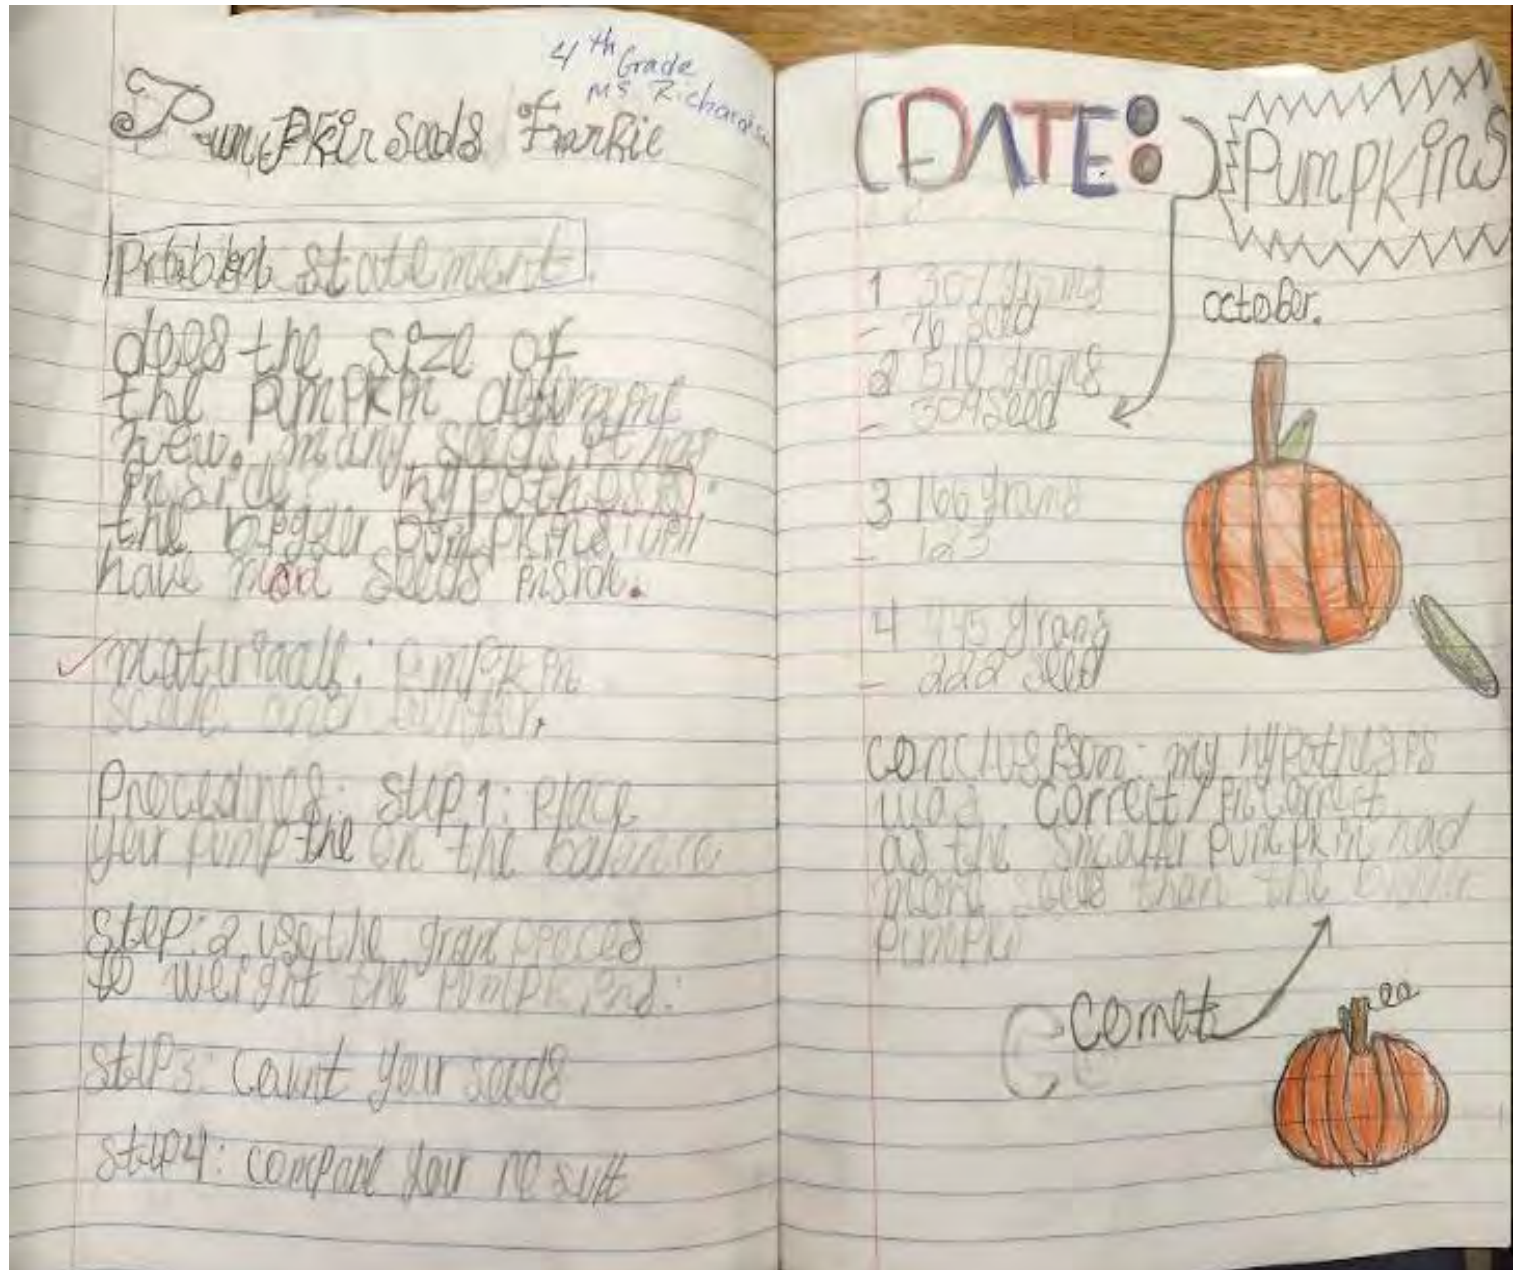 4th Grade
Ms Richardson
Pumpkin seeds Frankie
Problem statement.
does the size of
the pumpkin determine
how many seeds it has
inside? hypothesis:
the bigger pumpkins will
have mor seeds inside.
pumpkin
scale and
Procedures: Step 1: place
your pump the on the balance
Step: 2 use the gram peaces
to weight the pumpkins.
Step 3: Count your seeds
Step 4: compare your result
(DATE:)
Pumpkins
october.
1 307 grams
- 76 seed
2 510 grams
- 304 seed
3 166 grams
- 123
4 445 grams
- 222 seed
conclusion: my hypothesis
was correct/incorrect
as the smaller pumpkin had
more seeds than the bigger
pumpki